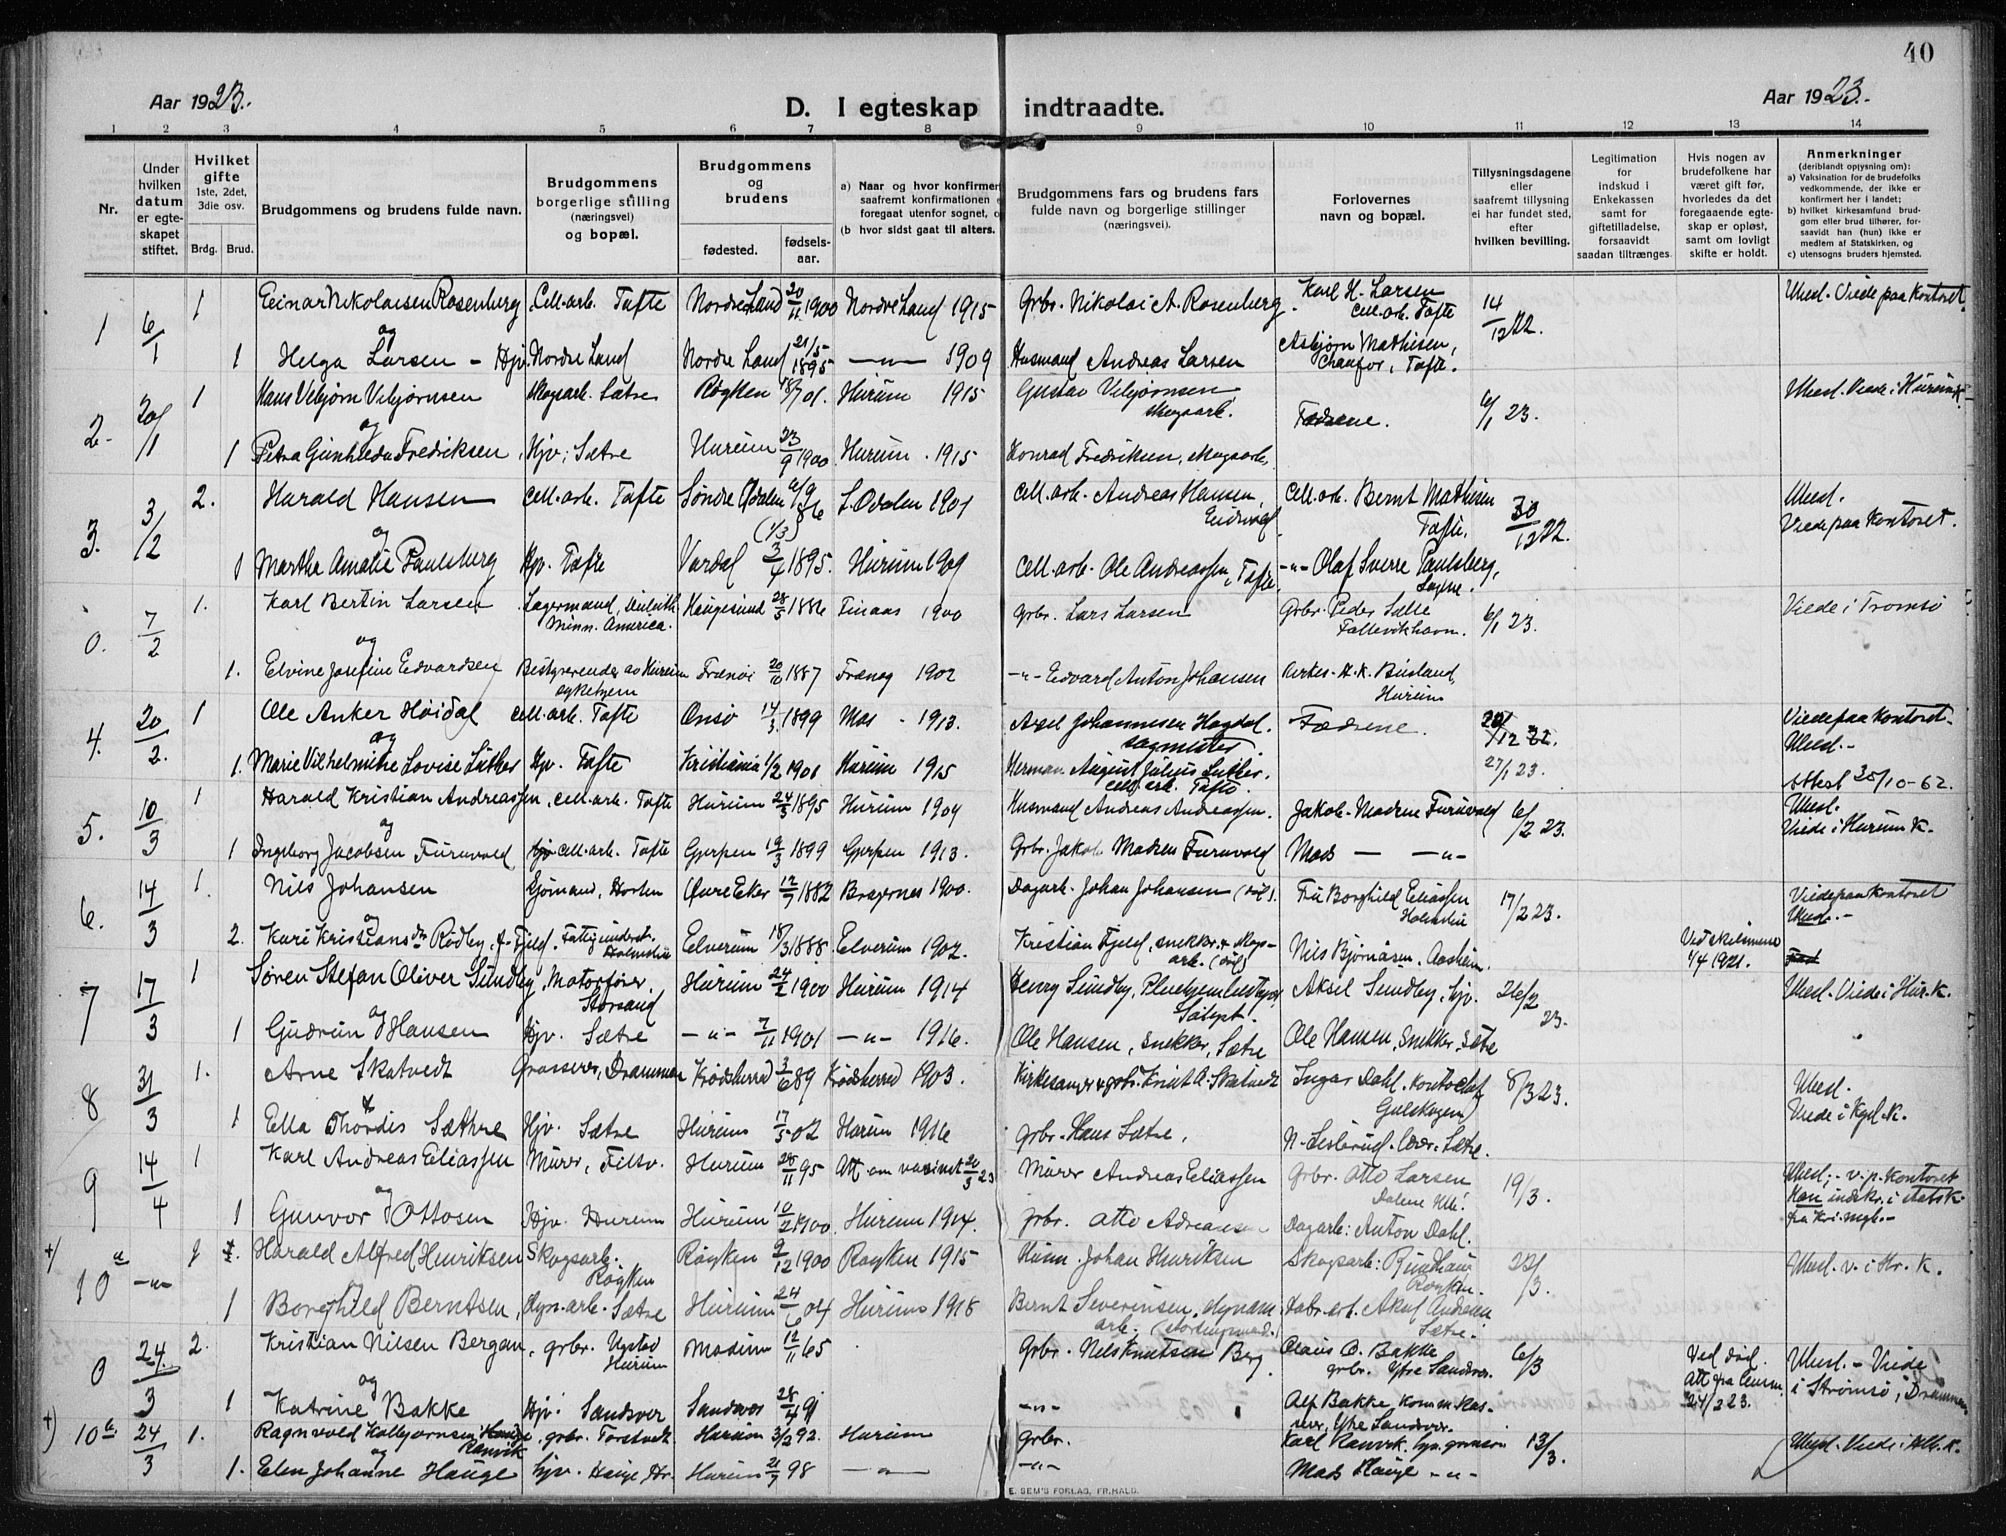 40
Aar 1923.
D. I egteskap indtraadte.
Aar 1923.
1 2 3 4 5 6 7 8 9 10 11 12 13 14
Nr.
Under hvilken datum er egteskapet stiftet.
Hvilket gifte
1ste, 2det, 3die osv.
Brdg. Brud.
Brudgommens og brudens fulde navn.
Brudgommens borgerlige stilling (næringsvei) og bopæl.
Brudgommens og brudens
fødested. fødselsaar.
a) Naar og hvor konfirmer
saafremt konfirmationen
foregaat utenfor sognet, o
(b hvor sidst gaat til alters.
Brudgommens fars og brudens fars
fulde navn og borgerlige stillinger
(næringsvei).
Forlovernes
navn og bopæl.
Tillysningsdagene
eller
saafremt tillysning
ei har fundet sted,
efter
hvilken bevilling.
Legitimation
for
indskud i
Enkekassen
samt for
giftetilladelse,
forsaavidt
saadan tiltrænges
Hvis nogen av
brudefolkene har
været gift før,
hvorledes da det
foregaaende egte-
skap er opløst,
samt om lovligt
skifte er holdt.
Anmerkninger
(deriblandt opjysning om):
a) Vaksination for de brudefolks
vedkommende, der ikke er
konfirmert her i landet;
b) hvilket kirkesamfund brud-
gom eller brud tilhører, for-
saavidt han (hun) ikke er
medlem af Statskirken, og
c) utensogns bruders hjemsted.
1 6/1 1 Einar Nikolaisen Rosenberg Cell.arb. Tofte Nordre Land 20/11 1900 Nordre Land 1915 Grbr. Nikolai A. Rosenberg. Karl H. Larsen Cell.arb. Tofte 14/12 22. Uhesl. Viede paa Kontoret.
og
1 Helga Larsen - Hjv. Nordre Land Nordre Land 21/5 1895 —"— 1909 Husmand Andreas Larsen Asbjørn Mathisen, Chaufør, Tofte.
2. 20/1 1 Hans Vebjørn Vebjørnsen Skogsarb. Sætre Røyken 18/7 01. Hurum 1915 Gustav Vebjørnsen, skogsarb. Fædrene. 6/1 23. Ubesl. Viede i Hurum K.
og
1 Petra Gunhilda Fredriksen, Hjv. Sætre Hurum 23/9 1900 Hurum. 1915 Konrad Fredriksen, skogsarb.
3. 3/2 2. Harald Hansen Cell.arb. Tofte Søndre Odalen 6/9 86 S. Odalen 1901 Cell.arb. Andreas Hansen, Cell.arb. Bernt Mathisen Tofte. 30/12 22. Ubesl. Viede paa Kontoret.
og (1/3)
1 Martha Amalie Paulsberg Hjv. Tofte Vardal 3/4 1895. Hurum 1909 Cell.arb. Ole Andreassen, Tofte. -"- Olaf Sverre Paulsberg,
0. 7/2 1. Karl Bertin Larsen Lagermand, Duluth Minn. America. Haugesund 28/5 1886 1900 Grbr. Lars Larsen Grbr. Peder Sætre Fallevikhavn. 6/1 23. Viede i Tromsø
og
1. Elvine Josefine Edvardsen Bestyrerende av Hurum sykehjem 20/10 1887 1902 -"- Edvard Anton Johansen Hurum
4. 20/2. 1 Ole Anker Høidal Cell.arb. Tofte Onsø 14/3. 1899 Mos. 1913. Axel Johannesen Høydal. sagmester. Fædrene. 22. Viede paa Kontoret. Ubesl.-
og
1. Marie Vilhelmine Lovise Luther Hjv. Tofte Kristiania 1/2 1901 Hurum 1915 Herman August Julius Luther. cell.arb. Tofte. 27/1 23. Attest 30/10-62.
5. 10/3 1 Harald Kristian Andreassen, cell.arb. Tofte Hurum 24/3 1895 Hurum 1909 Husmand Andreas Andreassen. Jakob Madsen Furuvald 6/2 23. Ubesl. Viede i Hurum K.
og
1 Ingeborg Jacobsen Furuvald Hjv cell.arb. Tofte Gjerpen 19/3 1899 Gjerpen 1913. Grbr. Jakob Madsen Furuvald Mads — -"-
6. 14/3 1. Nils Johansen Sjømand, Horten Øvre Eker 12/7 1882 Bragernes 1900. Dagarb. Johan Johansen (død). Fru Borghild Eliassen Holmsbu 17/2 23. Viede paa Kontoret Ubesl.-
og
2. Kari Kristiansdtr Rødby f. Fjeld, Holmsbu Elverum 18/3 1888. Elverum 1902. Kristian Fjeld, snekker & skogsarb. (død) Nils Bjørnåsen, Aasheim. Ved skilsmisse 1/4 1921.
7 17/3 1 Søren Stefan Oliver Sundby, Motorfører. Storsand Hurum 24/2 1900 Hurum 1914 Henry Sundby, Aksel Sundby, Hjv. 26/2 23. Ubesl. Viede i Hur. K.
og
1 Gudrun Hansen Hjv. Sætre -"- 7/11 1901 -"- 1916. Ole Hansen, Snekker, Sætre Ole Hansen, Snekker, Sætre
8 31/3 1. Arne Skatvedt Grosserer, Drammen Krødsherred 3/6 89 Krødsherred 1903. Kirkesanger & grbr. Knut A. Skatvedt Ingar Dahl, Kontorchef Gulskogen 8/3 23. Ubesl. Viede i Kgsl. K.
&
1 Ella Thordis Sæthre Hjv. Sætre Hurum 17/5 02 Hurum 1916 grbr. Hans Sætre. N. Lærer. Sætre.
9 14/4 1 Karl Andreas Eliassen Murer, Filtv. Hurum 28/11 95 Att. om vaccinat. 20/3 23 Murer Andreas Eliassen Grbr. Otto Larsen 19/3. Ubesl.; - v. p. Kontoret
og
1 Gunvor Ottosen Hjv. Hurum Hurum 10/2 1900. Hurum 1914. grbr. Otto Adreansen Dagarb: Anton Dahl.
+) 10a -"- 1 Harald Alfred Henriksen Skogsarb. Røyken Røyken 9/12 1900 Røyken 1915 Johan Henriksen Skogsarb: Røyken. 22/3. Ubesl. v. i Hr. K.
og
1 Borghild Berntsen, Dyn.arb. Sætre Hurum 24/6 04 Hurum 1918 Bernt Severinsen, dynam. arb. Fabr.arb. Aksel Andersen Sætre.
0 24/3 2. Kristian Nilsen Bergan, grbr. Hurum Modum 12/11 65 Grbr. Nels Knutsen Berg. Claus O. Bakke grbr. Ytre Sandsvær. 6/3 Ved død. Ubesl. - Viede i Strømsø, Drammen
og
1 Katrine Bakke Hjv. Sandsvær Sandsvær 28/4 91 -"- Alf Bakke, Ytre Sandsvær.
+) 10b 24/3 1. Ragnvald Kolbjørnsen Ramvik, grbr. Tofstvedt Hurum 3/2 92. Hurum grbr. Karl Ramvik, 13/3. Ubesl. Viede i
og
1. Elen Johanne Hauge Hjv. Hauge, Hr. Hurum 21/7 98 —"— -"- Mads Hauge -"-
E. SEM'S FORLAG, FR.HALD.